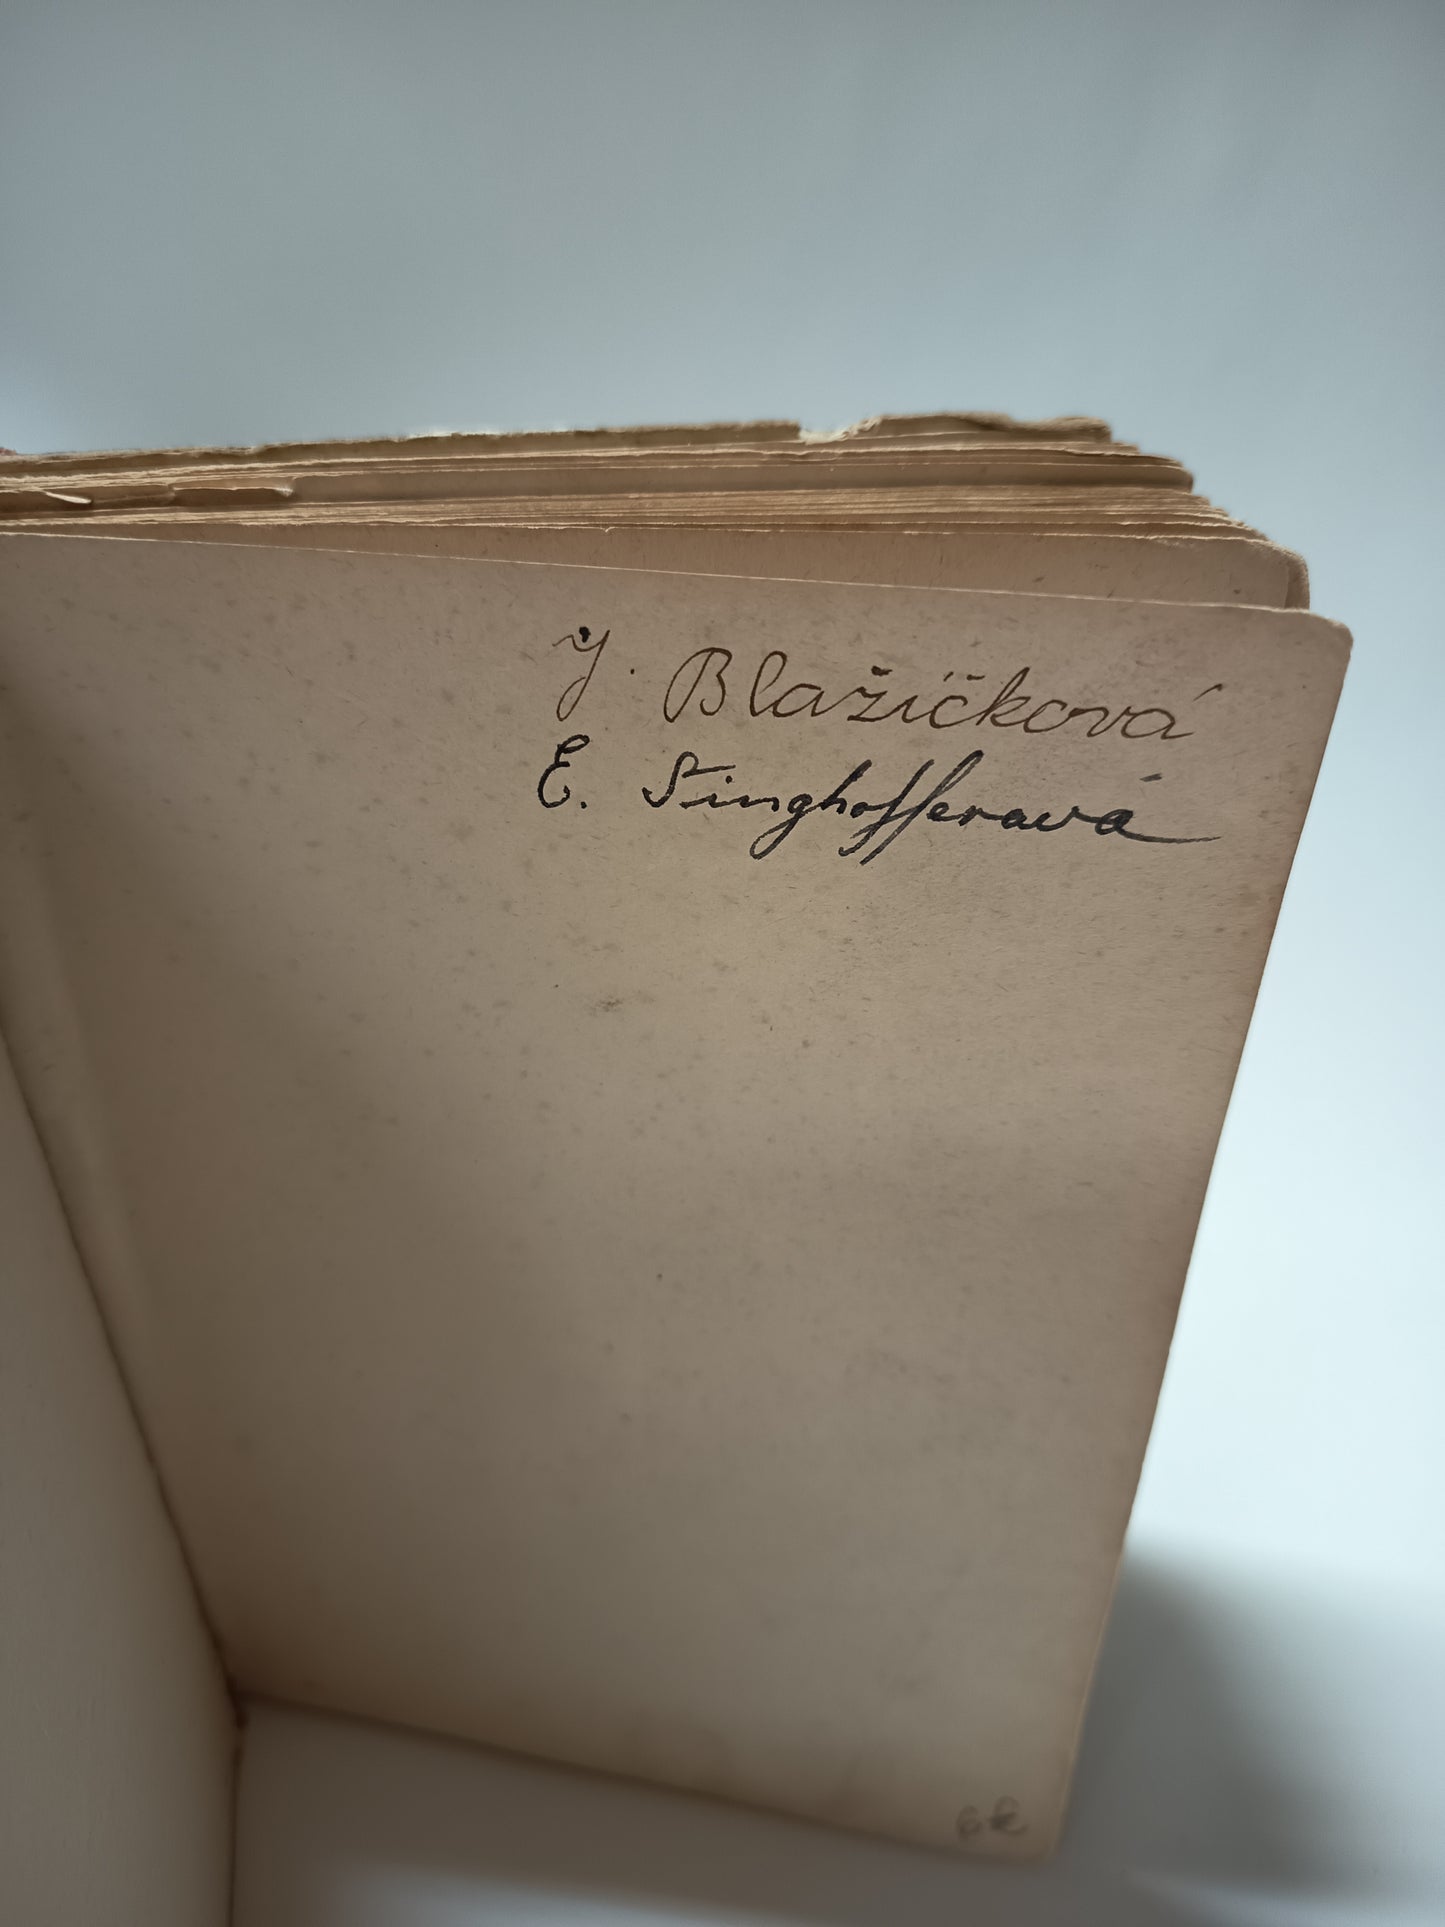 J. Blažíčková
E. Singhofferová